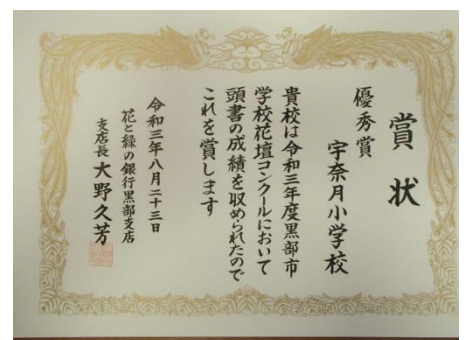 賞状
優秀賞
宇奈月小学校
貴校は令和三年度黒部市
学校花壇コンクールにおいて
頭書の成績を収められたので
これを賞します
令和三年八月二十三日
花と緑の銀行黒部支店
支店長 大野久芳